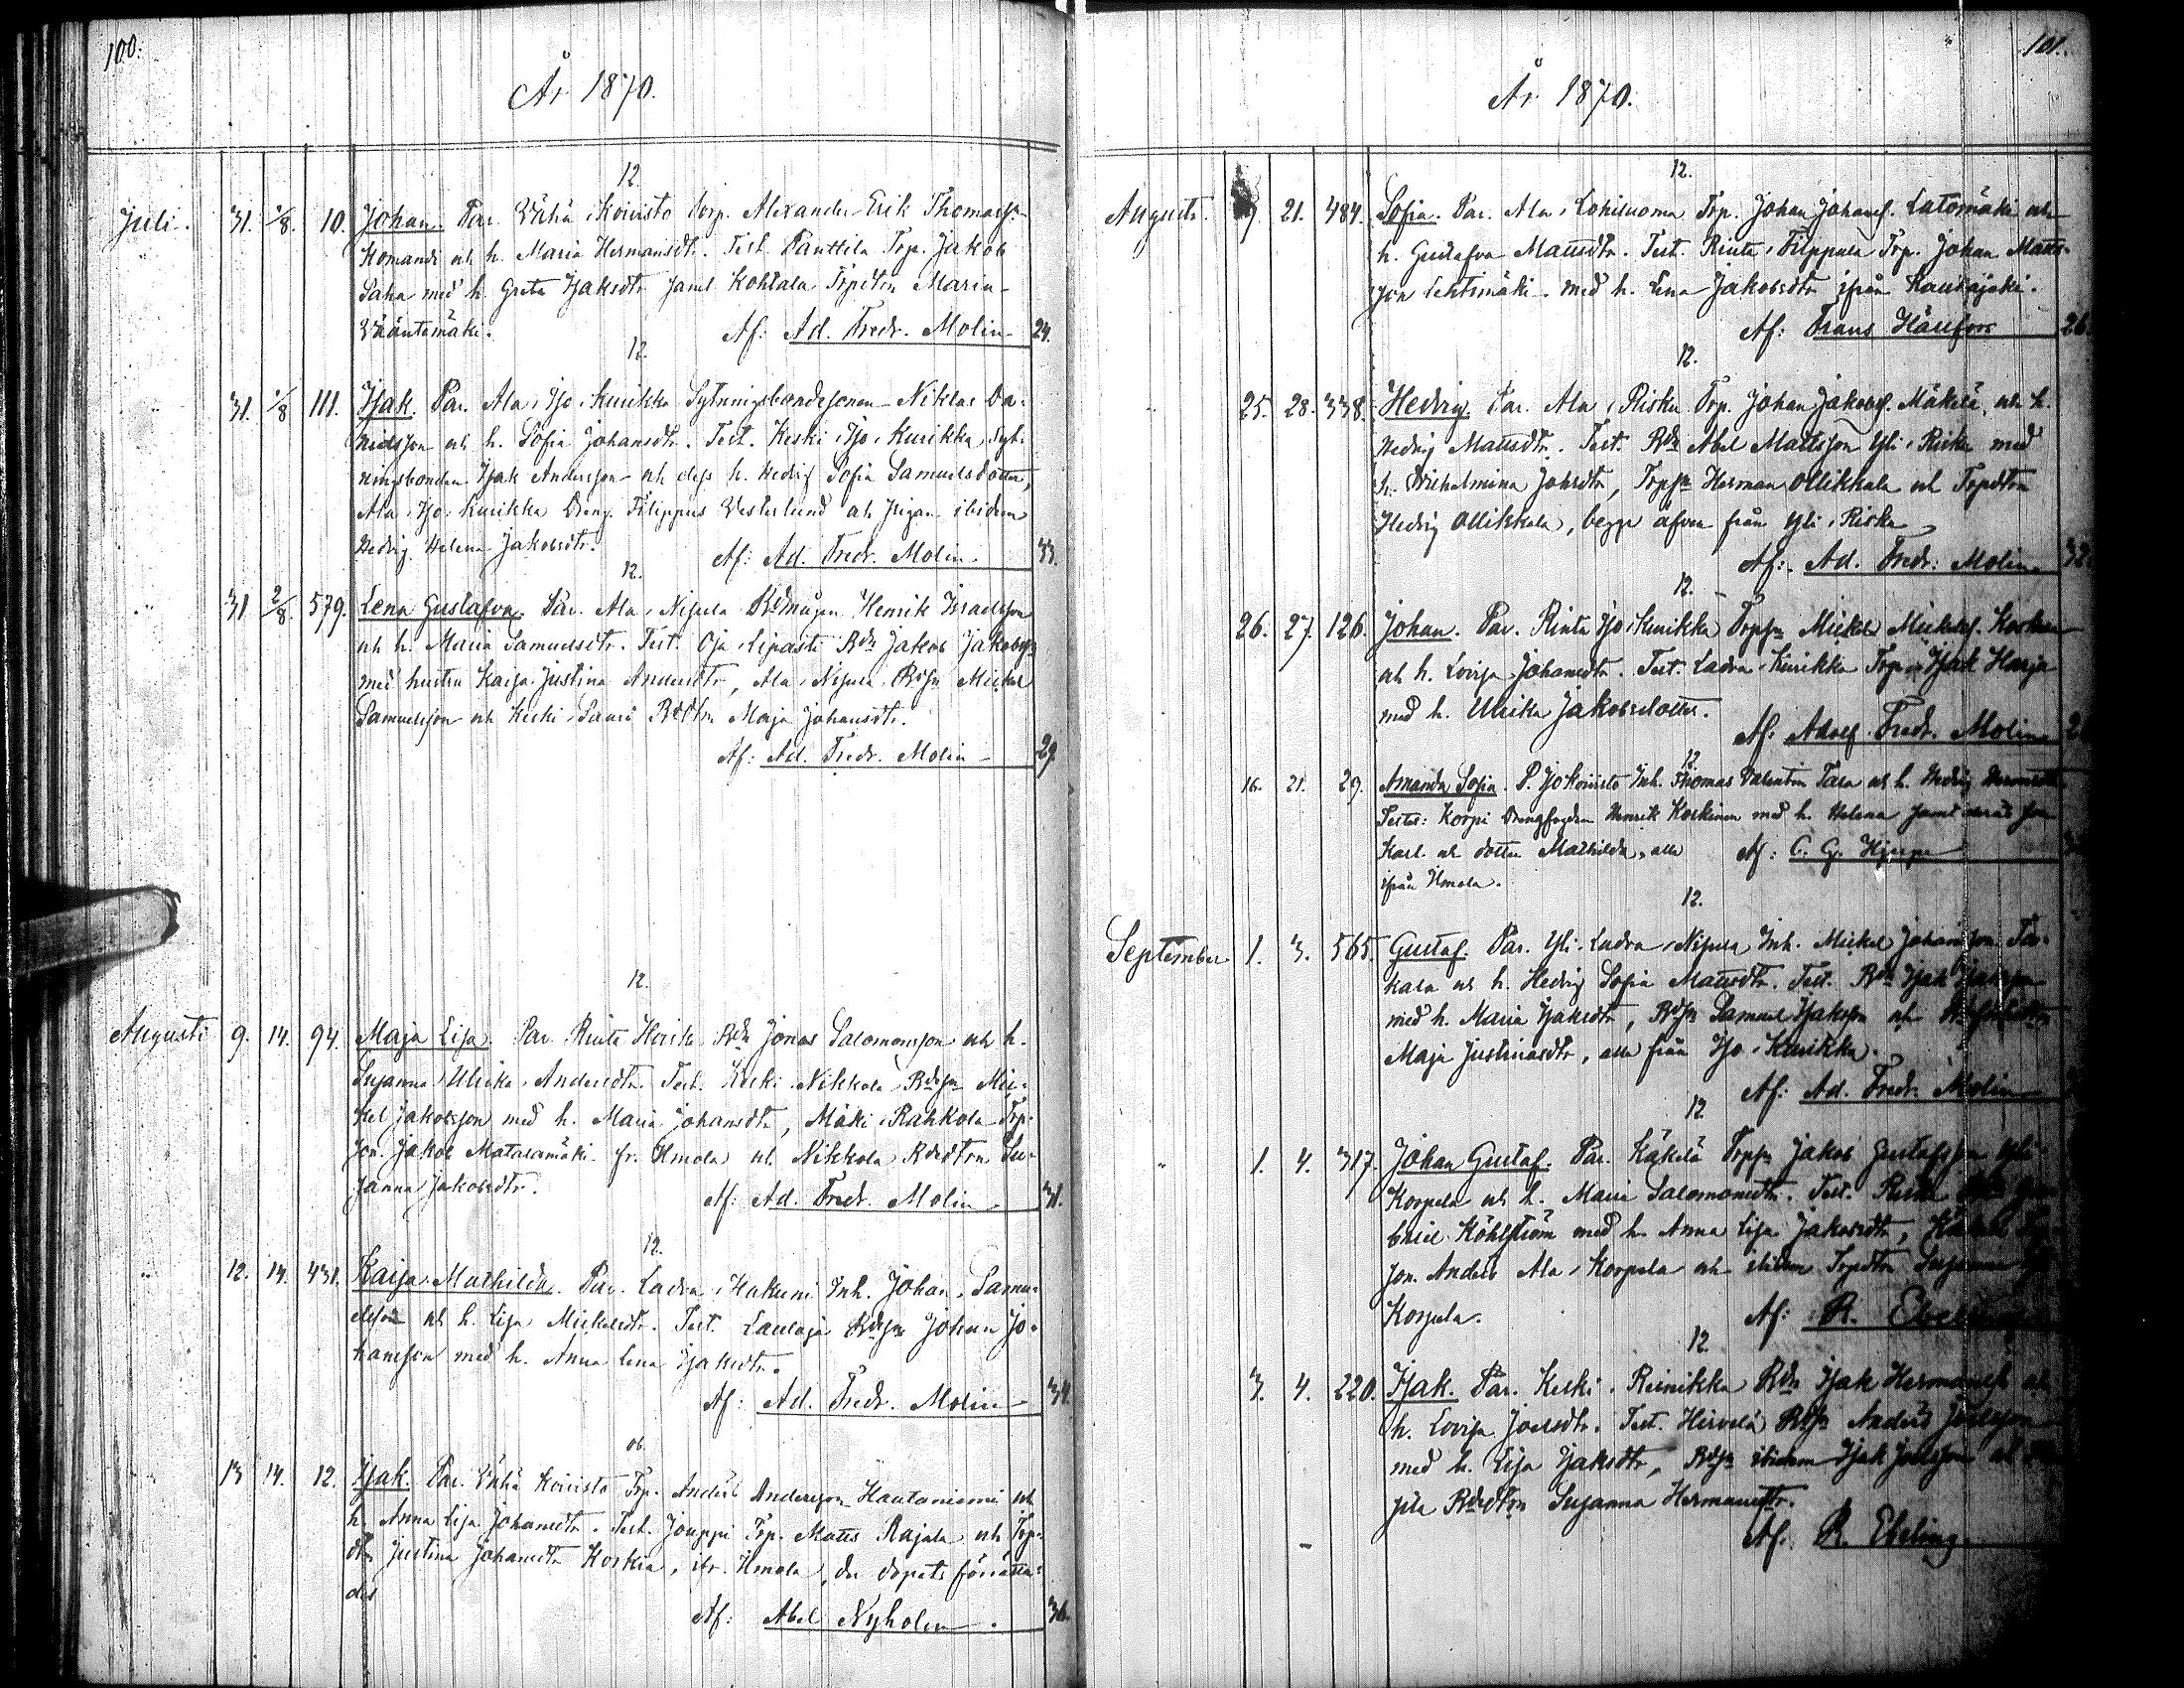 100.
År 1870.
12.
Juli. 31. 1/8. 10. Johan. Par. Wähä Koivisto Torp. Alexander Erik Thomass:
Komandt och h. Maria Hermansdtr. Test. Panttila Trp. Jakob
Saha med h. Greta Isaksdtr samt Kohtala Trpdtrn Maria
Wääntemäki. Af: Ad. Fredr. Molin 24.
12.
31. 1/8 111. Isak. Par. Ala, Ijo, Kurikka Sytningsbondesonen Niklas Da-
nielsson och h. Sofia Johansdtr. Test. Keski, Ijo, Kurikka Syt-
ningsbonden Isak Andersson och dess h. Hedvig Sofia Samuelsdotter,
Ala, Ijo, Kurikka Dreng Filippus Westerlund och pigan ibidem
Hedvig Helena Jakobsdtr. Af: Ad. Fredr. Molin. 33.
12.
31 2/8. 579. Lena Gustafva. Par. Ala, Nisula Bdemågen Henrik Israelsson
och h. Maria Samuelsdtr. Test. Oja, Lipasti Bdn Jakob Jakobss
med hustru Kaisa Justina Andersdtr, Ala, Nisula Bdsn Mickel
Samuelsson och Keski, Sauri Bddtrn Maja Johansdtr.
Af: Ad. Fredr. Molin 29.
12.
Augusti 9. 14. 94. Maja Lisa. Par. Rinta Horika Bdn Jonas Salomonsson och h.
Susanna Ulrika Andersdtr. Test. Keski Nikkola Bdesn Mic-
kel Jakobsson med h. Maria Johansdtr, Mäki, Rahkola Trp.
son. Jakob Matalamäki fr. Ilmola och Nikkola Bdedtrn Su-
sanna Jakobsdtr. Af: Ad. Fredr. Molin 31.
12.
12. 14. 431. Kaisa Mathilda. Par. Ladva, Hakuni Inh. Johan Samu-
elsson och h. Lisa Mickelsdtr. Test. Laulaja Bdsn Johan Jo-
hansson med h. Anna Lena Isaksdtr.
Af: Ad. Fredr. Molin 34.
ob.
13 14. 12. Isak. Par. Wähä Koivisto Trp. Anders Andersson Hautaniemi och
h. Anna Lisa Johansdtr. Test. Jouppi Trp. Matts Rajala och Trp-
dtr Justina Johansdtr Koskia, ifr. Ilmola, der dopets förrätta-
des
Af: Abel Nyholm. 36.
101.
År 1870.
12.
Augusti. 21. 484. Sofia. Par. Ala, Lohiluoma Trp. Johan Johanss. Latomäki och
h. Gustafva Mattsdtr. Test. Rinta, Filppula Trp. Johan Matts-
son Lehtimäki med h. Lena Jakobsdtr ifrån Kauhajoki.
Af: Frans Hårfors 26.
12.
25. 28. 338. Hedvig. Par. Ala, Risku Trp. Johan Jakobss. Mäkelä, och h
Hedvig Mattsdtr. Test. Bdn Abel Mattsson Yli, Risku med
h. Wilhelmina Johsdtr, Trpsn Herman Ollikkala och Trpdtrn
Hedvig Ollikkala, begge äfven från Yli, Risku
Af: Ad. Fredr. Molin 32.
12.
26. 27. 126. Johan. Par. Rinta Ijo, Kurikka Trpsn Mickel Mickelss.
och h. Lovisa Johansdtr. Test. Ladva, Kurikka Trp. Isak Harja
med h. Ulrika Jakobsdotter.
Af: Adolf Fredr. Molin
12.
16. 21. 29. Amanda Sofia. P. Ijo Koivisto Inh. Thomas Valentin Tasa och h. Hedvig
Testes: Korpi Drengfogden Henrik Koskinen med h. Helena samt deras son
Karl och dotter Mathilda, alla Af: C. G. Hjerpe
ifrån Ilmola.
12.
September 1. 3. 565. Gustaf. Par. Yli, Ladva, Nisula Inh. Mickel Johansson Tas-
kala och h. Hedvig Sofia Mattsdtr. Test. Bdn Isak Isaksson
med h. Maria Isaksdtr, Bdsn Samuel Isaksson och
Maja Justinasdtr, alla från Ijo, Kurikka.
Af: Ad. Fredr. Molin
12
1. 4. 317. Johan Gustaf. Par. Käkelä Trpsn Jakob Gustafsson Yli
Korpela och h. Maria Salomonsdtr. Test.
briel Köhlström med h. Anna Lisa Jakobsdtr,
son. Anders Ala, Korpela och ibidem Trpdtrn Susanna
Korpela. Af: R. Ebeling
12
3. 4. 220. Isak. Par. Keski, Reinikka Bdn Isak Hermanss och
h. Lovisa Joelsdtr. Test. Hirvelä Bdsn Anders Joelsson
med h. Lisa Isaksdtr, Bdsn ibidem Isak Joelsson och
pila Bdedtrn Susanna Hermansdtr.
Af. R. Ebeling.